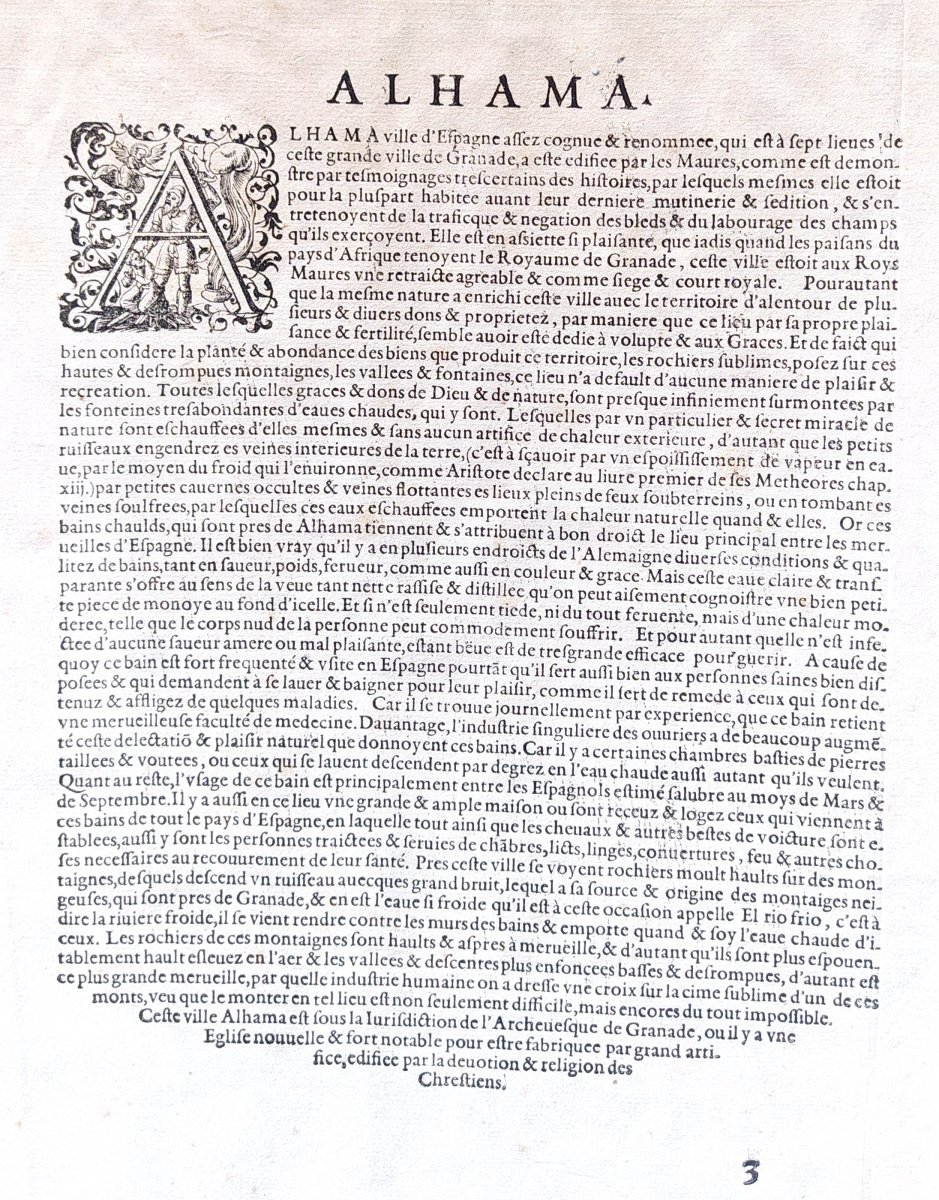 ALHAMA.
ALHAMA ville d'Eſpagne aſſez cognue & renommee, qui eſt à ſept lieues de
ceſte grande ville de Granade, a eſte edifiee par les Maures, comme eſt demon-
ſtre par teſmoignages treſcertains des hiſtoires, par leſquels meſmes elle eſtoit
pour la pluſpart habitee auant leur derniere mutinerie & ſedition, & s'en-
tretenoyent de la traficque & negation des bleds & du labourage des champs
qu'ils exerçoyent. Elle eſt en aſſiette ſi plaiſante, que iadis quand les paiſans du
pays d'Afrique tenoyent le Royaume de Granade, ceſte ville eſtoit aux Roys
Maures vne retraicte agreable & comme ſiege & court royale. Pourautant
que la meſme nature a enrichi ceſte ville auec le territoire d'alentour de plu-
ſieurs & diuers dons & proprietez, par maniere que ce lieu par ſa propre plai-
ſance & fertilité, ſemble auoir eſté dedie à volupte & aux Graces. Et de faict qui
bien conſidere la planté & abondance des biens que produit ce territoire, les rochiers ſublimes, poſez ſur ces
hautes & deſrompues montaignes, les vallees & fontaines, ce lieu n'a default d'aucune maniere de plaiſir &
recreation. Toutes leſquelles graces & dons de Dieu & de nature, ſont preſque infiniement ſurmontees par
les fonteines treſabondantes d'eaues chaudes, qui y ſont. Leſquelles par vn particulier & ſecret miracle de
nature ſont eſchauffees d'elles meſmes & ſans aucun artifice de chaleur exterieure, d'autant que les petits
ruiſſeaux engendrez es veines interieures de la terre, (c'eſt à ſçauoir par vn eſpoiſſiſſement de vapeur en ea-
ue, par le moyen du froid qui l'enuironne, comme Ariſtote declare au liure premier de ſes Metheores chap.
xiij.) par petites cauernes occultes & veines flottantes es lieux pleins de feux ſoubterreins, ou en tombant es
veines ſoulfrees, par leſquelles ces eaux eſchauffees emportent la chaleur naturelle quand & elles. Or ces
bains chaulds, qui ſont pres de Alhama tiennent & s'attribuent à bon droict le lieu principal entre les mer-
ueilles d'Eſpagne. Il eſt bien vray qu'il y a en pluſieurs endroicts de l'Alemaigne diuerſes conditions & qua-
litez de bains, tant en ſaueur, poids, ferueur, comme auſſi en couleur & grace. Mais ceſte eaue claire & tranſ-
parante s'offre au ſens de la veue tant nette raſſiſe & diſtillee, qu'on peut aiſement cognoiſtre vne bien peti-
te piece de monoye au fond d'icelle. Et ſi n'eſt ſeulement tiede, ni du tout feruente, mais d'une chaleur mo-
deree, telle que le corps nud de la perſonne peut commodement ſouffrir. Et pour autant quelle n'eſt infe-
ctee d'aucune ſaueur amere ou mal plaiſante, eſtant bëue eſt de treſgrande efficace pour guerir. A cauſe de
quoy ce bain eſt fort frequenté & vſite en Eſpagne pourtãt qu'il ſert auſſi bien aux perſonnes ſaines bien diſ-
poſees & qui demandent à ſe lauer & baigner pour leur plaiſir, comme il ſert de remede à ceux qui ſont de-
tenuz & affligez de quelques maladies. Car il ſe trouue journellement par experience, que ce bain retient
vne merueilleuſe faculté de medecine. Dauantage, l'induſtrie ſinguliere des ouuriers a de beaucoup augmẽ-
té ceſte delectatiõ & plaiſir naturel que donnoyent ces bains. Car il y a certaines chambres baſties de pierres
taillees & voutees, ou ceux qui ſe lauent deſcendent par degrez en l'eau chaude auſſi autant qu'ils veulent.
Quant au reſte, l'vſage de ce bain eſt principalement entre les Eſpagnols eſtimé ſalubre au moys de Mars &
de Septembre. Il y a auſſi en ce lieu vne grande & ample maiſon ou ſont receuz & logez ceux qui viennent à
ces bains de tout le pays d'Eſpagne, en laquelle tout ainſi que les cheuaux & autres beſtes de voicture ſont e-
ſtablees, auſſi y ſont les perſonnes traictees & ſeruies de chãbres, licts, linges, conuertures, feu & autres cho-
ſes neceſſaires au recouurement de leur ſanté. Pres ceſte ville ſe voyent rochiers moult haults ſur des mon-
taignes, deſquels deſcend vn ruiſſeau auecques grand bruit, lequel a ſa source & origine des montaiges nei-
geuſes, qui ſont pres de Granade, & en eſt l'eaue ſi froide qu'il eſt à ceſte occaſion appelle El rio frio, c'eſt à
dire la riuiere froide, il ſe vient rendre contre les murs des bains & emporte quand & ſoy l'eaue chaude d'i-
ceux. Les rochiers de ces montaignes ſont haults & aſpres à merueille, & d'autant qu'ils ſont plus eſpouen-
tablement hault eſleuez en l'aer & les vallees & deſcentes plus enfoncees baſſes & deſrompues, d'autant eſt
ce plus grande merueille, par quelle induſtrie humaine on a dreſſe vne croix ſur la cime ſublime d'un de ces
monts, veu que le monter en tel lieu eſt non ſeulement difficile, mais encores du tout impoſſible.
Ceſte ville Alhama eſt ſous la Iuriſdiction de l'Archeueſque de Granade, ou il y a vne
Egliſe nouuelle & fort notable pour eſtre fabriquee par grand arti-
fice, edifiee par la deuotion & religion des
Chreſtiens.
3